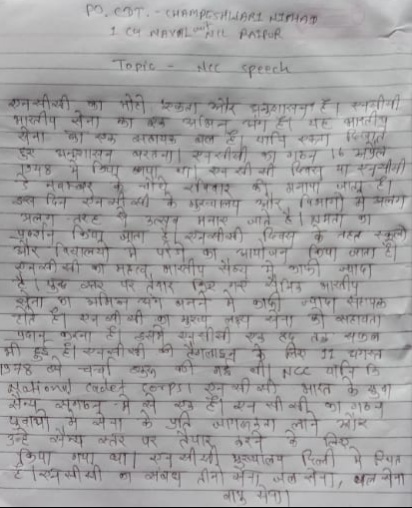 PO. CDT. - CHAMPESHWARI NISHAD
1 CG NAVAL unit NCC RAIPUR
Topic - NCC speech
एनसीसी का मोटो एकता और अनुशासन है। एनसीसी
भारतीय सेना का एक अभिन्न अंग है। यह भारतीय
सेना का एक सहायक बल है। यानि एकता
हुए अनुशासन बरतना। एनसीसी का गठन 16 अप्रैल
1948 में किया गया था। एन सी सी दिवस या एनसीसी
डे नवम्बर के चौथे रविवार को मनाया जाता है।
इस दिन एन सी सी के मुख्यालय और विभागों में अलग
अलग तरह से उत्सव मनाए जाते है। क्षमता का
प्रदर्शन किया जाता है। एनसीसी दिवस के तहत स्कूलों
और विद्यालयों में परेड का आयोजन किया जाता है।
एन सी सी का महत्व, भारतीय सैन्य में काफी ज्यादा
है। स्तर पर तैयार किए गए सैनिक भारतीय
सेना का अभिन्न अंग बनने में काफी ज्यादा सहायक
होते है। एन सी सी का मुख्य लक्ष्य सेना को सहायता
प्रदान करना है। इसमें एनसीसी एक हद तक सफल
भी हुई है। एनसीसी की के लिए 11 अगस्त
1978 को चर्चा शुरू की गई थी। NCC यानि कि
National Cadet Corps। एन सी सी भारत के युवा
सैन्य संगठन में से एक है। एन सी सी का गठन
युवाओं में सेना के प्रति जागरूकता लाने और
उन्हें सैन्य स्तर पर तैयार करने के लिए
किया गया था। एन सी सी मुख्यालय दिल्ली में स्थित
है। एन सी सी का संबंध तीनों सेना जल सेना, थल सेना
वायु सेना।